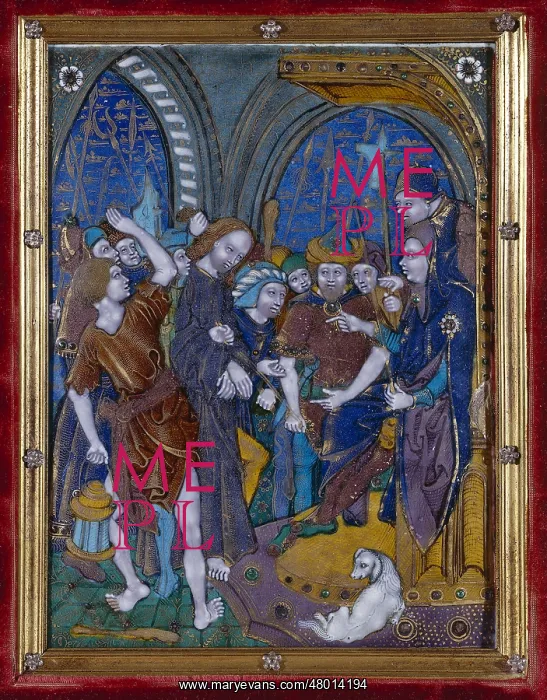 ME
PL
ME
PL
www.maryevans.com/48014194